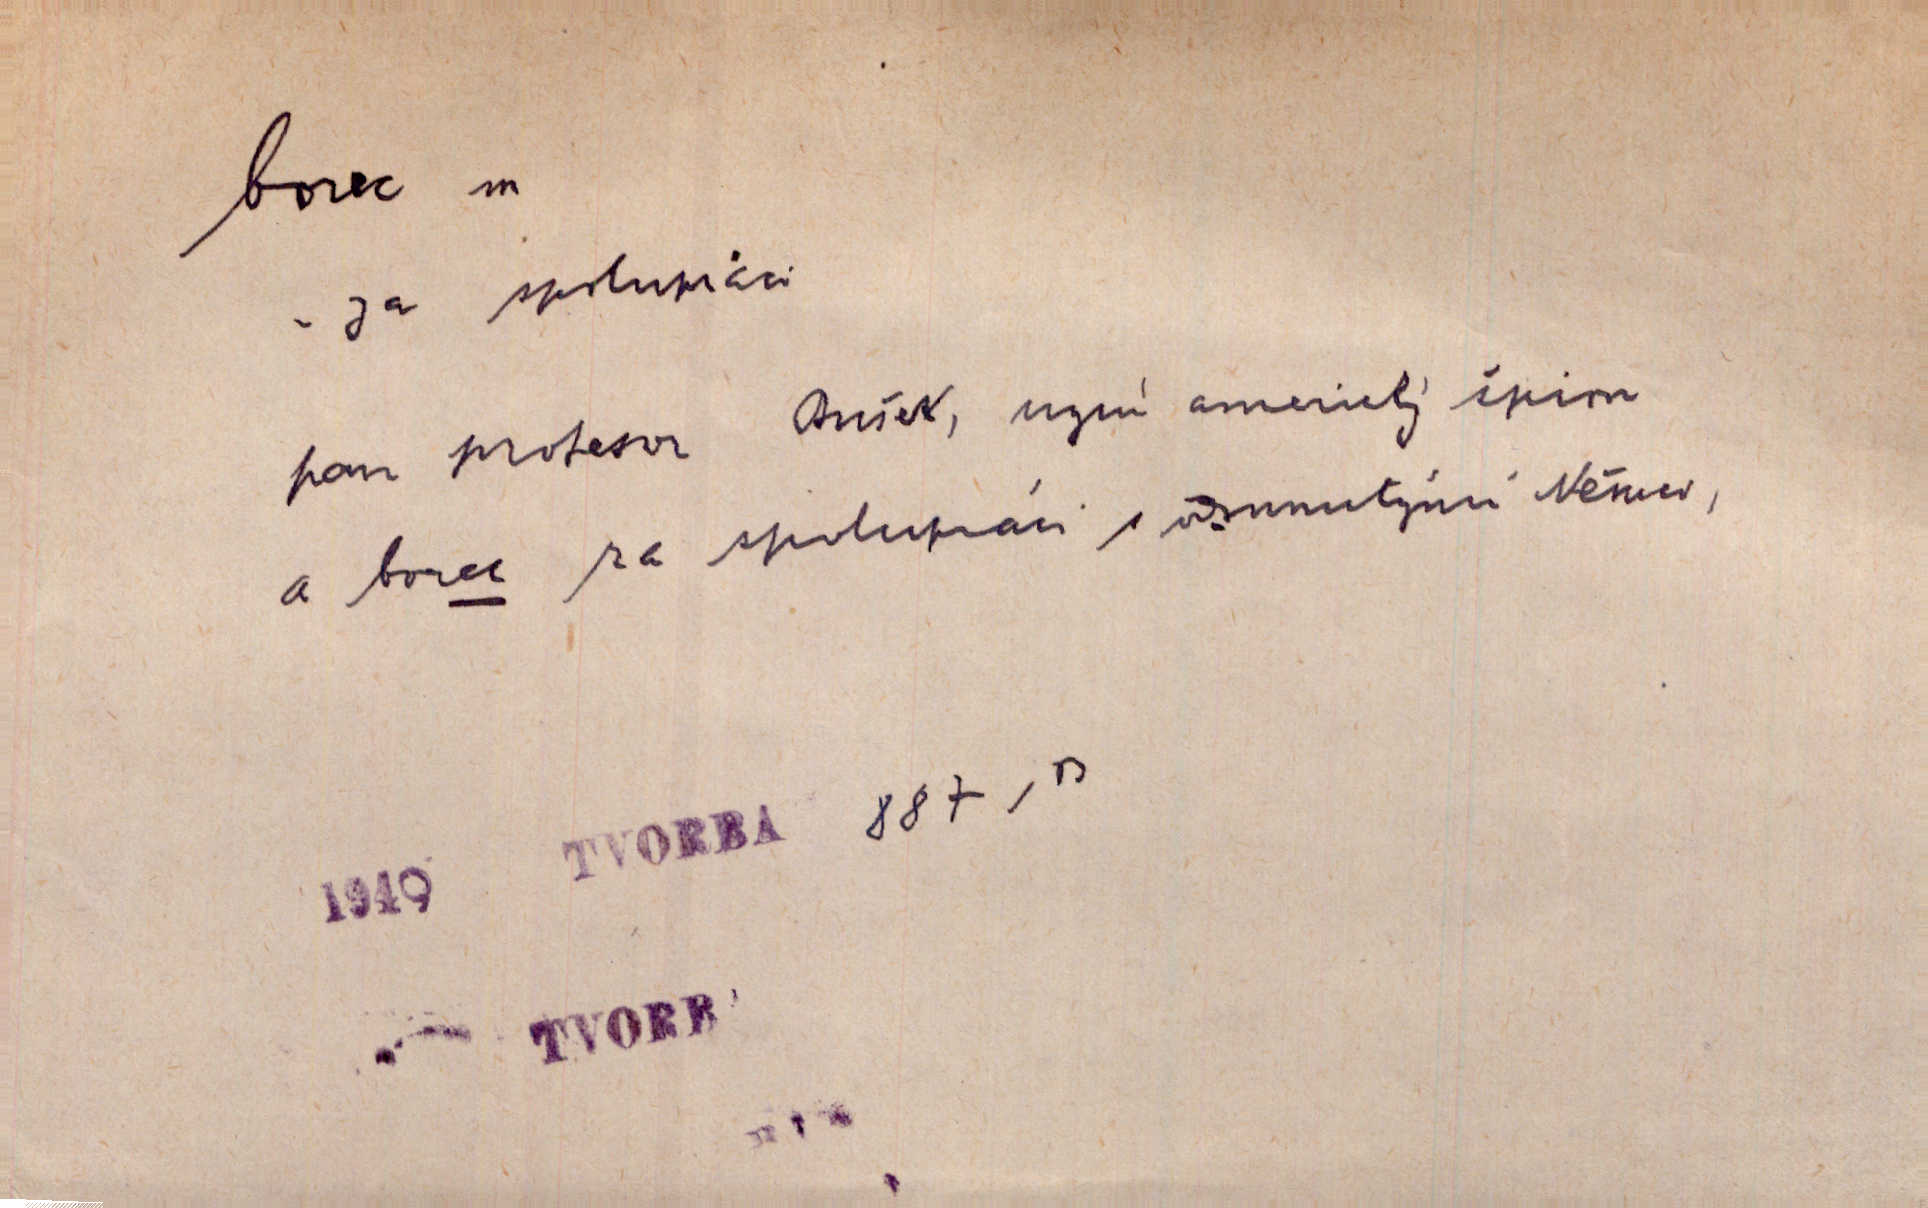 borec m
- za spolupráci
pan profesor Dušek, nyní americký špion
a borec za spolupráci s odsunutými Němci,
TVORBA 887,
1949
TVORB